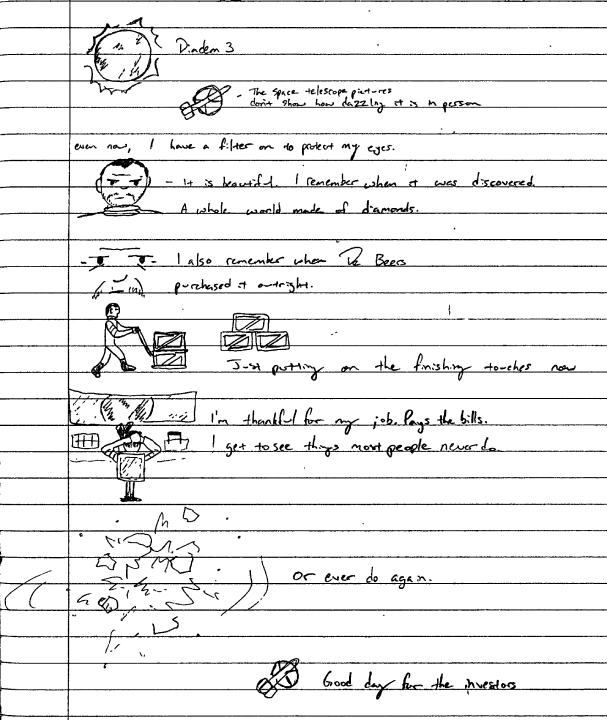 Diadem 3
- The space telescope pictures
don't show how dazzling it is in person
even now, I have a filter on to protect my eyes.
- It is beautiful. I remember when it was discovered.
A whole world made of diamonds.
I also remember when De Beers
purchased it outright.
Just putting on the finishing touches now
I'm thankful for my job. Pays the bills.
I get to see things most people never do.
Or ever do again.
Good day for the investors